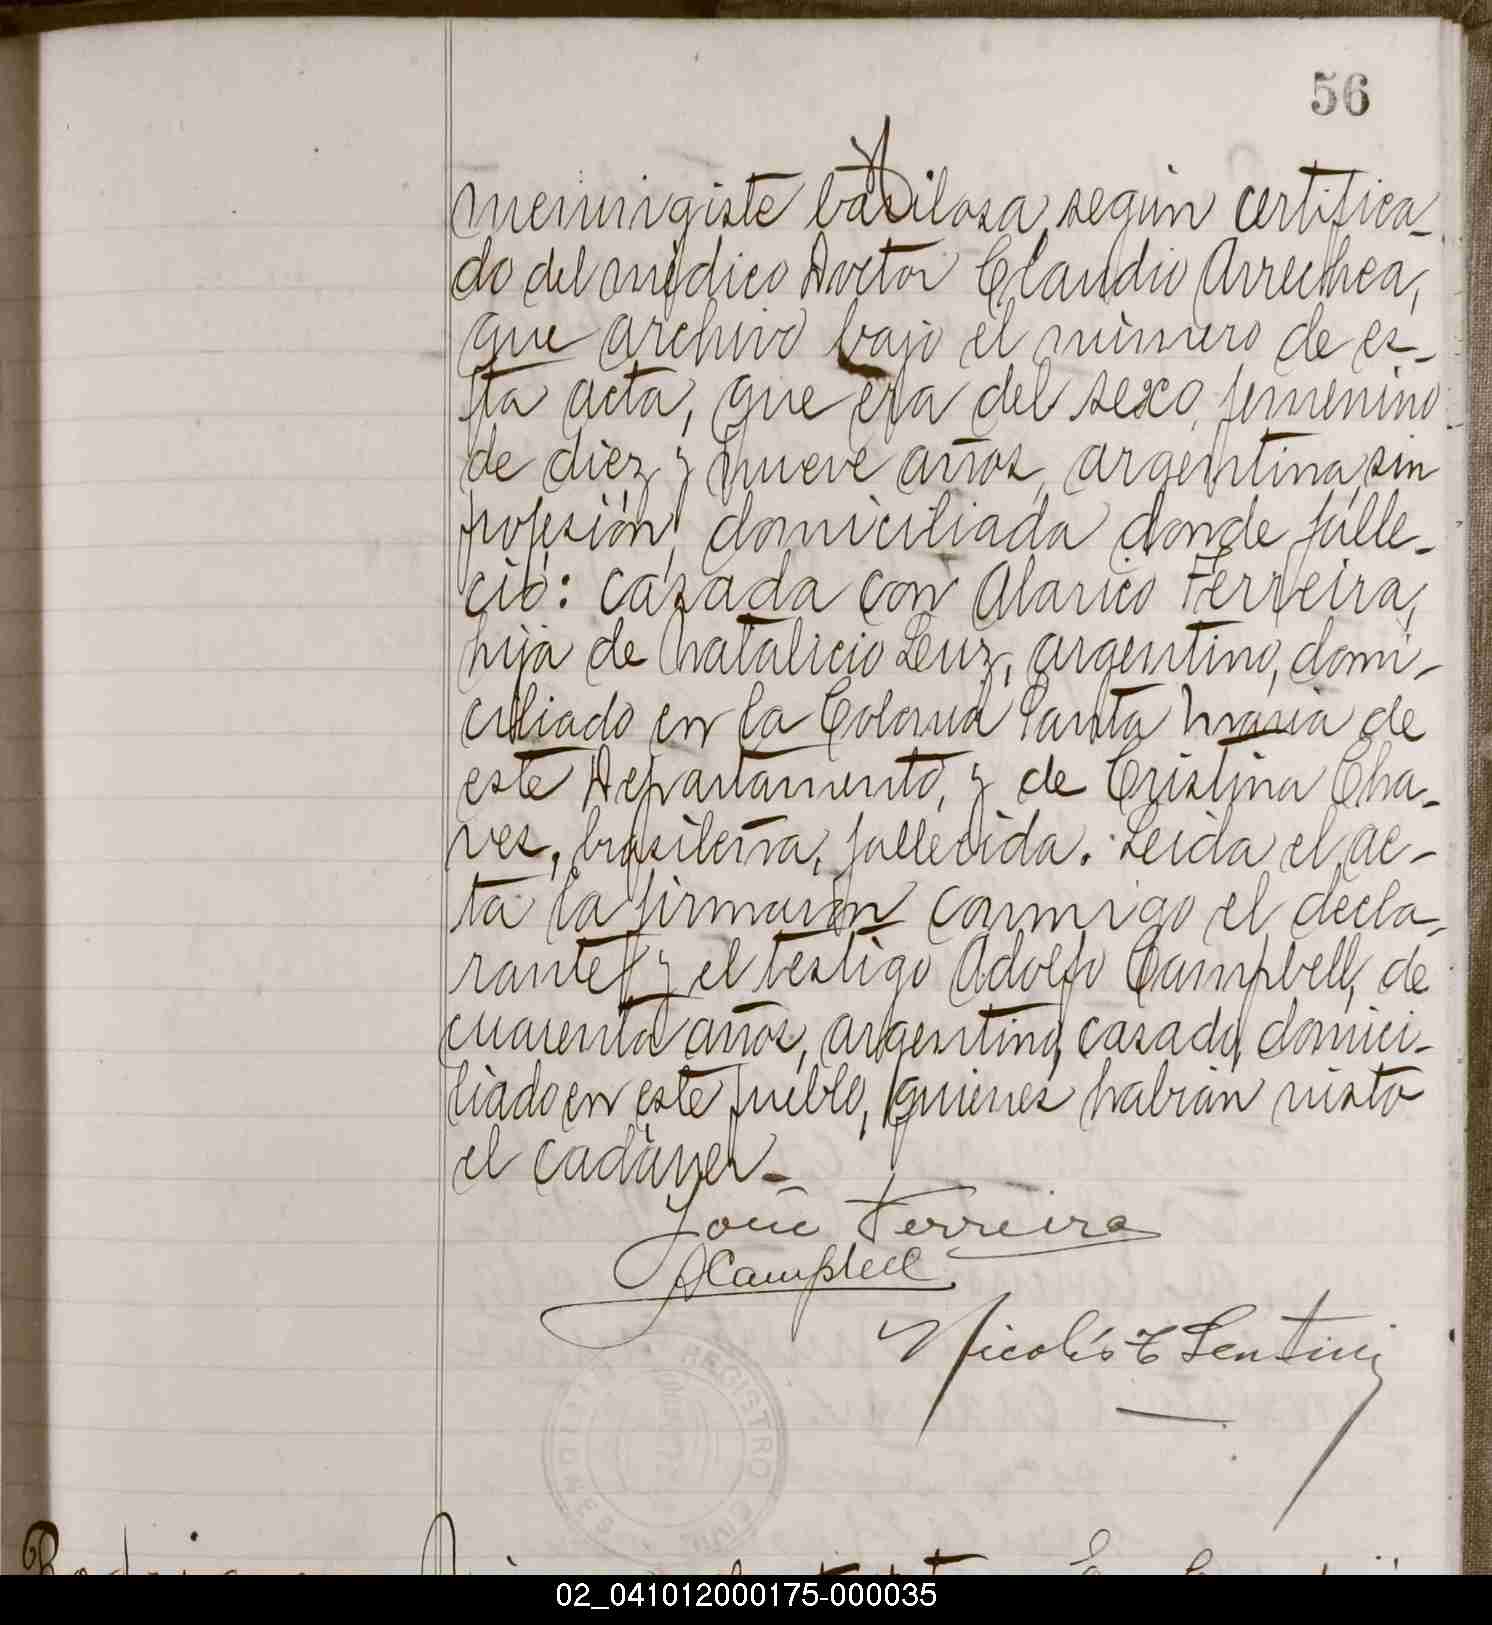 56
meningiste basilosa, según certifica-
do del médico Doctor Claudio Arrechea,
que archivo bajo el número de es-
ta acta, que era del sexo femenino
de diez y nueve años, argentina, sin
profesión, domiciliada donde falle-
ció: casada con Alarico Ferreira,
hija de Natalicio Leuz, argentino, domi-
ciliado en la Colonia Santa Maria de
este Departamento, y de Cristina Cha-
ves, brasilera, fallecida. Leida el ac-
ta la firmaron conmigo el decla-
rante y el testigo Adolfo Campbell, de
cuarenta años, argentino, casado, domici-
liado en este pueblo, quienes habian visto
el cadáver.-
José Ferreira
ACampbell
Nicolás Sentini
REGISTRO CIVIL
02_041012000175-000035